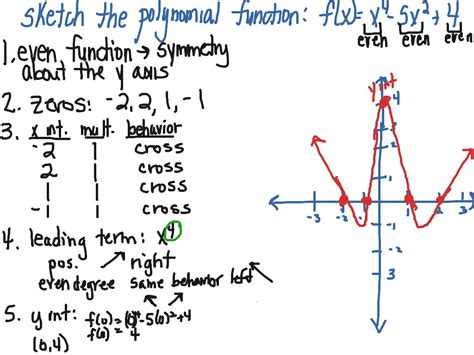 sketch the polynomial function: f(x)=x⁴-5x²+4
even even even
1. even function → symmetry
about the y axis
2. zeros: -2, 2, 1, -1
3. x int. mult. behavior
-2 1 cross
2 1 cross
1 1 cross
-1 1 cross
4. leading term: x⁴
pos. right
even degree same behavior left
5. y int: f(0)=(0)⁴-5(0)²+4
f(0)= 4
(0,4)
y int
4
2
1
-3 -2 -1 1 2 3
-1
-2
3